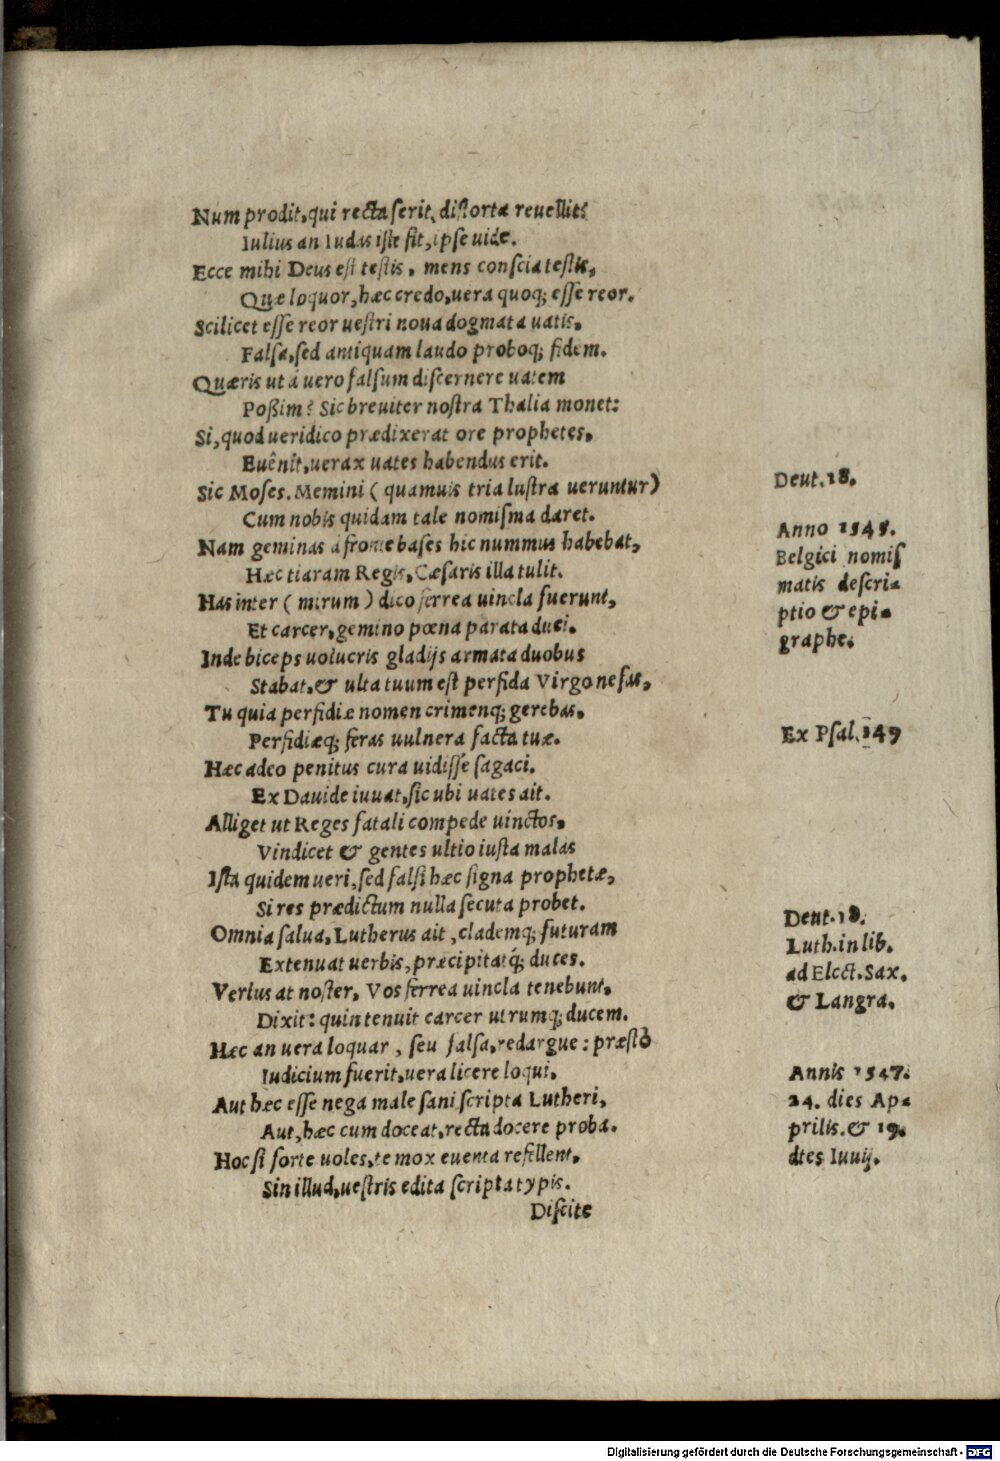 Num prodit, qui recta ſerit, diſtorta reuellit?
Iulius an Iudas iſte ſit, ipſe uide.
Ecce mihi Deus eſt teſtis, mens conſcia teſtis,
Quæ loquor, hæc credo, uera quoq; eſſe reor.
Scilicet eſſe reor ueſtri noua dogmata uatis,
Falſa, ſed antiquam laudo proboq; fidem.
Quæris ut à uero falſum diſcernere uatem
Poßim? Sic breuiter noſtra Thalia monet:
Si, quod ueridico prædixerat ore prophetes,
Euênit, uerax uates habendus erit.
Sic Moſes. Memini ( quamuis tria luſtra ueruntur)
Deut. 18.
Cum nobis quidam tale nomiſma daret.
Nam geminas à fronte baſes hic nummus habebat,
Hæc tiaram Regis, Cæſaris illa tulit.
Anno 1545.
Belgici nomiſ
matis deſcri-
ptio & epi-
graphe.
Has inter ( mirum ) dico ferrea uincla fuerunt,
Et carcer, gemino pœna parata duci.
Inde biceps uolucris gladijs armata duobus
Stabat, & ulta tuum eſt perfida Virgo nefas,
Tu quia perfidiæ nomen crimenq; gerebas,
Perfidiæq; feras uulnera facta tuæ.
Ex Pſal. 149
Hæc adeo penitus cura uidiſſe ſagaci.
Ex Dauide iuuat, ſic ubi uates ait.
Alliget ut Reges fatali compede uinctos,
Vindicet & gentes ultio iuſta malas
Iſta quidem ueri, ſed falſi hæc ſigna prophetæ,
Si res prædictum nulla ſecuta probet.
Omnia ſalua, Lutherus ait, clademq; futuram
Extenuat uerbis, præcipitatq́; duces.
Deut. 18.
Luth. in lib.
ad Elect. Sax.
& Langra.
Verſus at noſter, Vos ferrea uincla tenebunt,
Dixit: quin tenuit carcer utrumq; ducem.
Hæc an uera loquar, ſeu falſa, redargue: præſtò
Iudicium fuerit, uera licere loqui.
Aut hæc eſſe nega male ſani ſcripta Lutheri,
Aut, hæc cum doceat, recta docere proba.
Annis 1547.
24. dies Ap-
prilis. & 19.
dtes Iuuij.
Hoc ſi forte uoles, te mox euenta refellent,
Sin illud, ueſtris edita ſcripta typis.
Diſcite
Digitalisierung gefördert durch die Deutsche Forschungsgemeinschaft - DFG